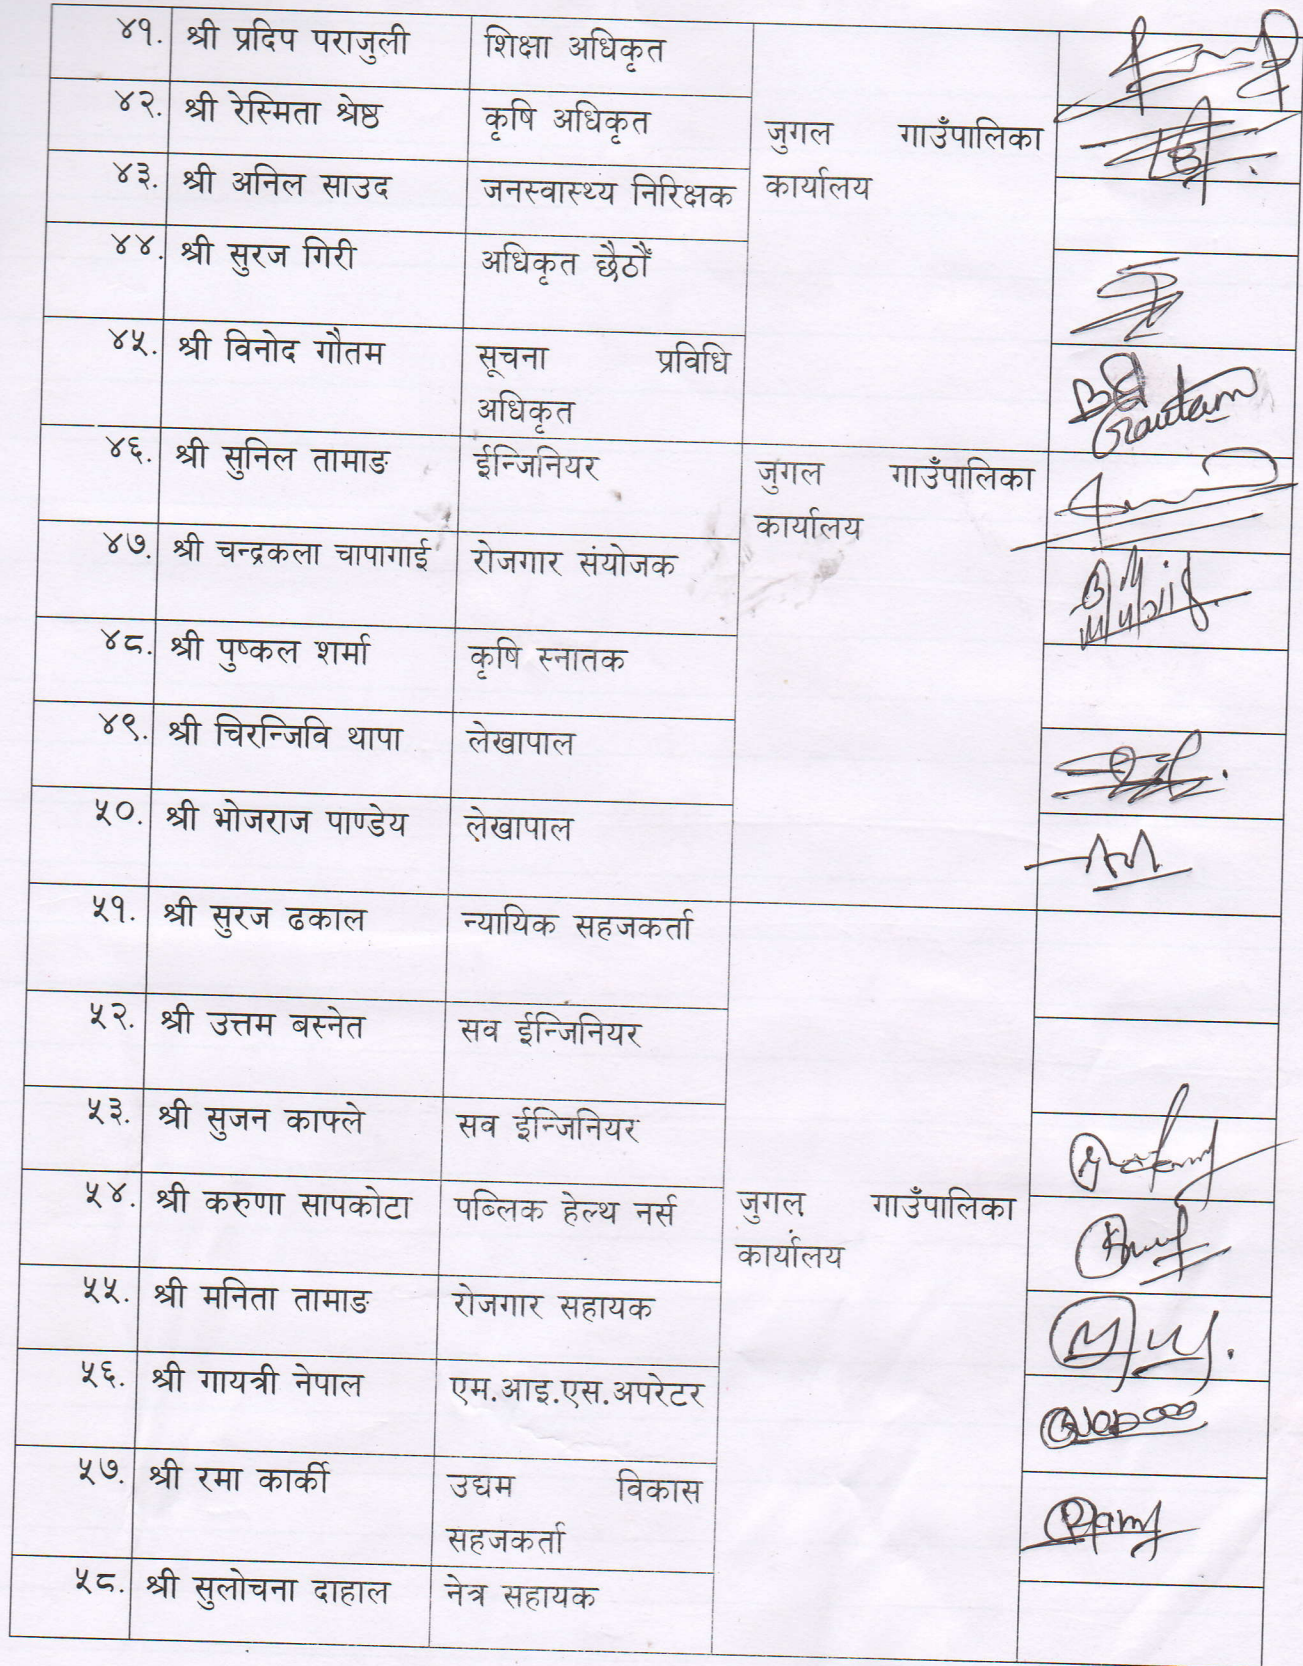 ४१. श्री प्रदिप पराजुली शिक्षा अधिकृत
४२. श्री रेस्मिता श्रेष्ठ कृषि अधिकृत जुगल गाउँपालिका
४३. श्री अनिल साउद जनस्वास्थ्य निरिक्षक कार्यालय
४४. श्री सुरज गिरी अधिकृत छैठौं
४५. श्री विनोद गौतम सूचना प्रविधि
अधिकृत
Gautam
४६. श्री सुनिल तामाङ ईन्जिनियर जुगल गाउँपालिका
कार्यालय
४७. श्री चन्द्रकला चापागाई रोजगार संयोजक
४८. श्री पुष्कल शर्मा कृषि स्नातक
४९. श्री चिरन्जिवि थापा लेखापाल
५०. श्री भोजराज पाण्डेय लेखापाल
५१. श्री सुरज ढकाल न्यायिक सहजकर्ता
५२. श्री उत्तम बस्नेत सव ईन्जिनियर
५३. श्री सुजन काफ्ले सव ईन्जिनियर
५४. श्री करुणा सापकोटा पब्लिक हेल्थ नर्स जुगल गाउँपालिका
कार्यालय
५५. श्री मनिता तामाङ रोजगार सहायक
५६. श्री गायत्री नेपाल एम.आइ.एस.अपरेटर
५७. श्री रमा कार्की उद्यम विकास
सहजकर्ता
५८. श्री सुलोचना दाहाल नेत्र सहायक